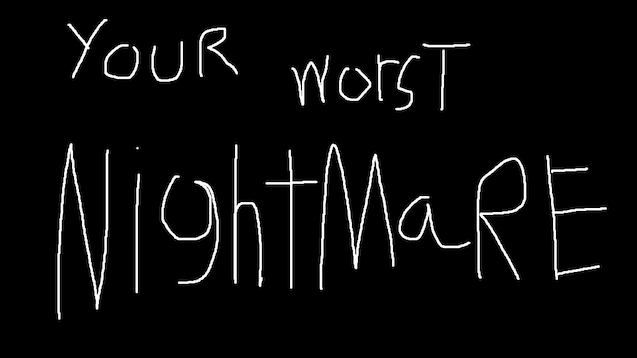 YOUR WorST
NightMaRE